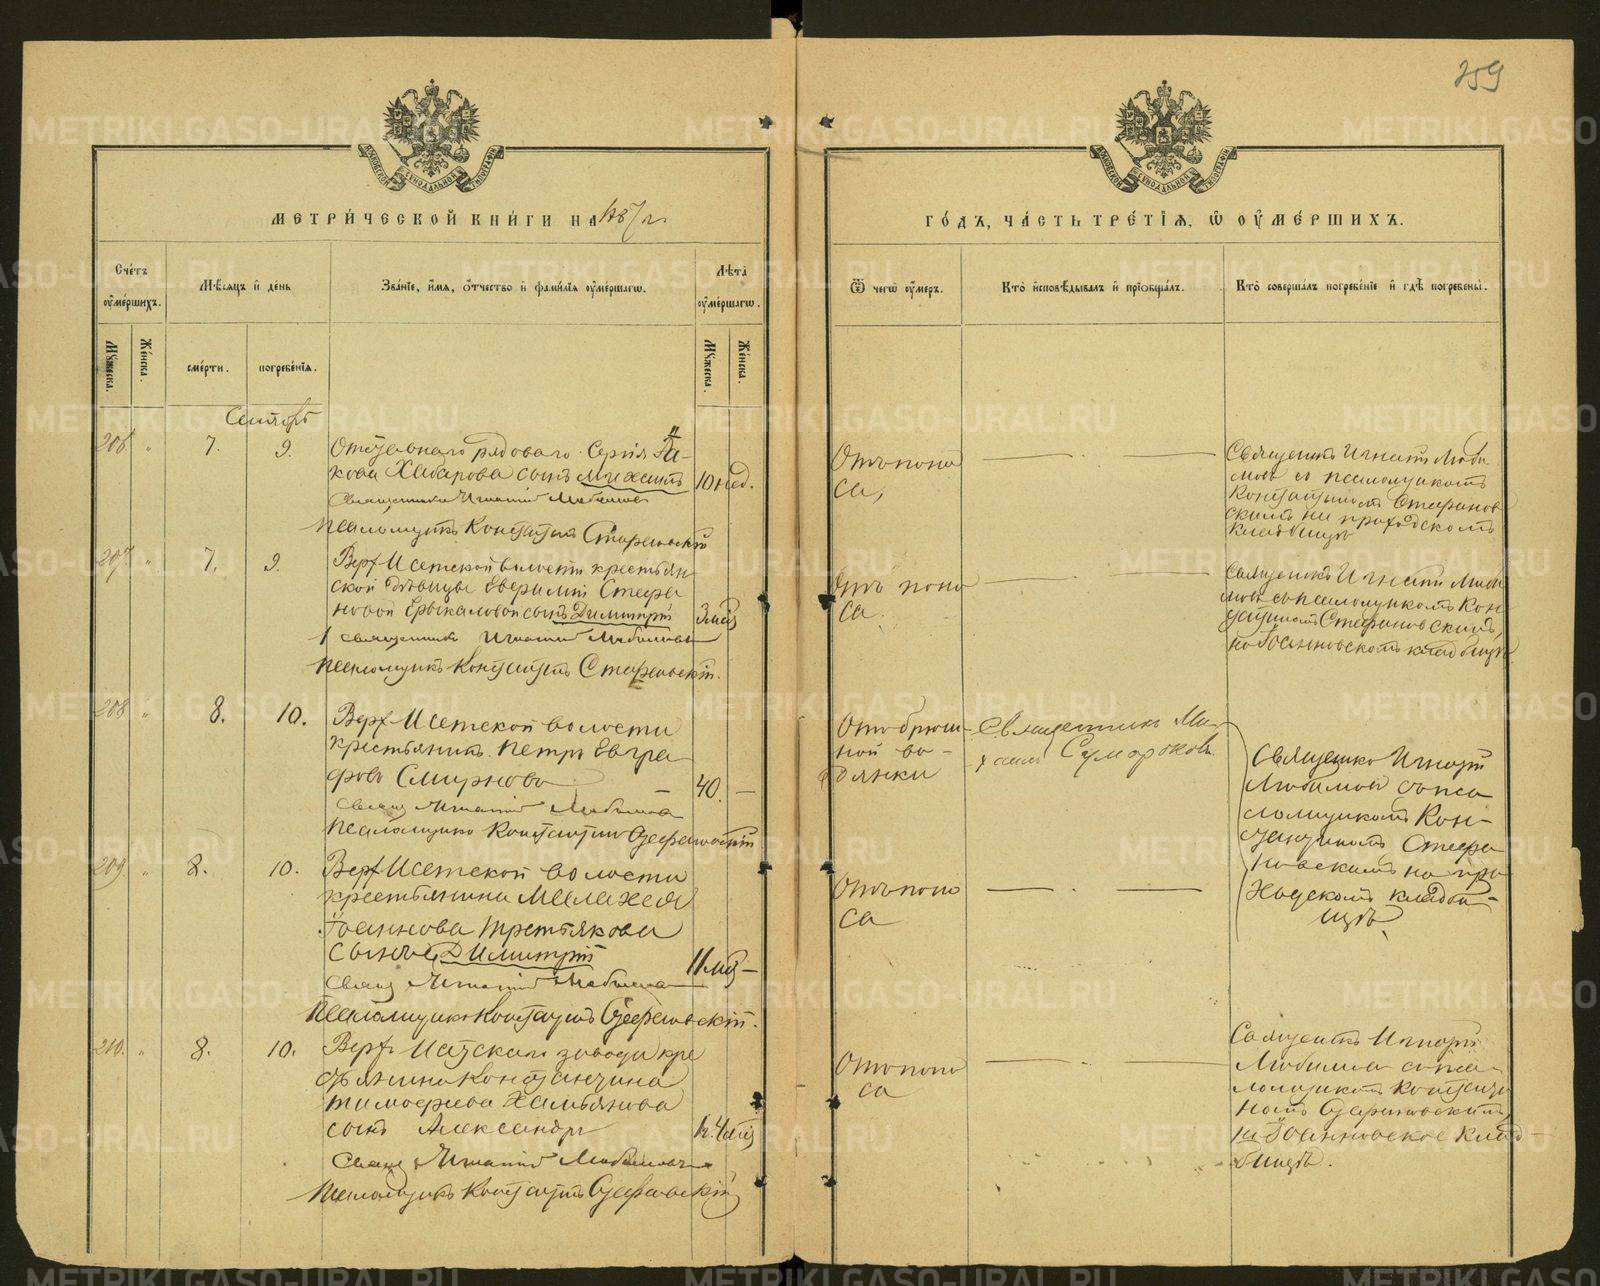 259
МЕТРИ́ЧЕСКОЙ КНИ́ГИ НА 1887 г.
ГО́ДЪ, ЧА́СТЬ ТРЕ́ТІѦ, Ѡ ОУ҆МЕ́РШИХЪ.
Сче́тъ оу҆ме́ршихъ.
Мѣ́сяцъ и҆ де́нь
Зва́нїе, и҆́мѧ, о҆́тчество и҆ фами́лїѧ оу҆ме́ршагѡ.
Лѣ́та оу҆ме́ршагѡ.
Ѿ чегѡ̀ оу҆́меръ.
Кто̀ и҆сповѣ́дывалъ и҆ прїѡбща́лъ.
Кто̀ соверша́лъ погребе́нїе и҆ гдѣ̀ погребены̀.
Мꙋ́жеска.
Же́нска.
сме́рти.
погребе́нїѧ.
Мꙋ́жеска.
Же́нска.
206 " 7. 9.
Отставнаго рядоваго Сергія
Хабарова сынъ
10 нед.
Священникъ Игнатій Любимовъ
Псаломщикъ Константинъ Стефановскій
Отъ поно
са,
Священникъ Игнатій Люби
мовъ съ псаломщикомъ
Константиномъ Стефанов
скимъ на приходскомъ
кладбищѣ
207 " 7. 9.
Верх-Исетской волости крестьян-
ской дѣвицы Стефа
новой сынъ Димитрій
3 мѣс
священникъ Игнатій Любимовъ
псаломщикъ Константинъ Стефановскій.
Отъ поно
са.
Священникъ Игнатій Люби
мовъ съ псаломщикомъ Кон-
стантиномъ Стефановскимъ,
на Іоанновскомъ кладбищѣ
208 " 8. 10.
Верх-Исетской волости
крестьянинъ Петръ Евгра
фовъ Смирновъ
40. —
Свящ Игнатій Любимовъ
Псаломщикъ Константинъ Стефановскій
Отъ брюш-
ной во-
дянки
Священникъ Ми-
хаилъ Сумароковъ.
Священикъ Игнатій
Любимовъ съ пса
ломщикомъ Кон-
стантиномъ Стефа
новскимъ на при
ходскомъ кладби-
щѣ.
209 " 8. 10.
Верх Исетской волости
крестьянина Малахея
Іоаннова Третьякова
сынъ Димитрій
11 мѣс —
Свящ Игнатій Любимовъ
Псаломщикъ Константинъ Стефановскій.
Отъ поно
са
210. " 8. 10.
Верх Исетскаго завода кре
стьянина Константина
Тимофеева Хамьянова
сынъ Александръ
Свящ Игнатій Любимовъ
Псаломщикъ Константинъ Стефановскій
Отъ поно
са
Священикъ Игнатій
Любимовъ съ пса
ломщикомъ Констан
номъ Стефановскимъ
на Іоанновское клад-
бищѣ.